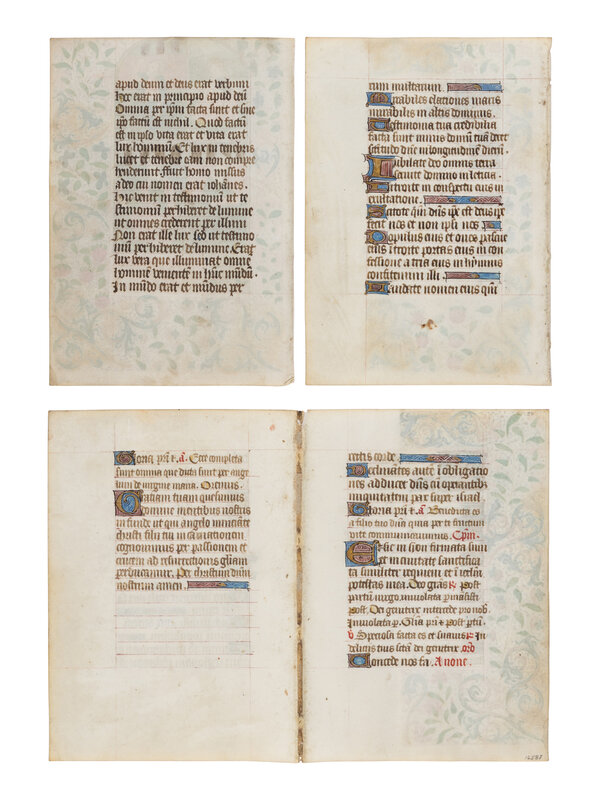 apud deum et deus erat verbum
Hoc erat in principio apud deū
Omnia per ipm̄ facta sunt et sine
ip̄o factū est nichil. Quod factū
est in ipso vita erat et vita erat
lux hominū. Et lux in tenebris
lucet et tenebre eam non compre
henderunt. ffuit homo missus
a deo cui nomen erat iohanes.
Hic venit in testimoniū ut te
stimoniū perhiberet de lumine
ut omnes crederent per illum
Non erat ille lux sed ut testimo
niū perhiberet de lumine. Erat
lux vera que illuminat omnē
hominē venientē in hūc mūdū.
In mūdo erat et mūdus per
tum multarum.
Mirabiles elationes maris
mirabilis in altis dominus.
Testimonia tua credibilia
facta sunt nimis domū tuā decet
scītudo dn̄e in longitudinē dierū.
Iubilate deo omnis terra
servite domino in leticia.
Introite in conspectu eius in
exultatione.
Scitote qm̄ dn̄s ip̄e est deus ip̄e
fecit nos et non ipsi nos
Populus eius et oves pascue
eius itroite portas eius in con
fessione atria eius in hymnis
confitemini illi.
Laudate nomen eius qm̄
Gloria pr̄i &. a. Ecce completa
sunt omnia que dicta sunt per ange
lum de virgine maria. Oremus.
Gratiam tuam quesumus
domine mentibus nostris
infunde ut qui angelo nunciāte
christi filii tui incarnationem
cognovimus per passionem et
crucem ad resurrectionis gloriam
perducamur. Per christum dn̄m
nostrum amen.
rectis corde.
Declinātes autē ī obligatio
nes adducet dn̄s cū operantibꝫ
iniquitatem pax super israel
Gloria pr̄i &. a. Benedicta es
a filio tuo dn̄a quia per te fructum
vite communicavimus. Cplm.
Et sic in syon firmata sum
et in civitate sanctifica
ta similiter requievi et ī ierl̄m
potestas mea. Deo gr̄as R. Post
partum virgo. inviolata p̄mansisti
Post. Dei genitrix intercede pro nob.
Inviolata p̄. Glia pr̄i & Post pr̄tū.
V. Speciosa facta es et suavis R. In
deliciis tuis sctā dei genitrix. orō
Concede nos fa. A none.